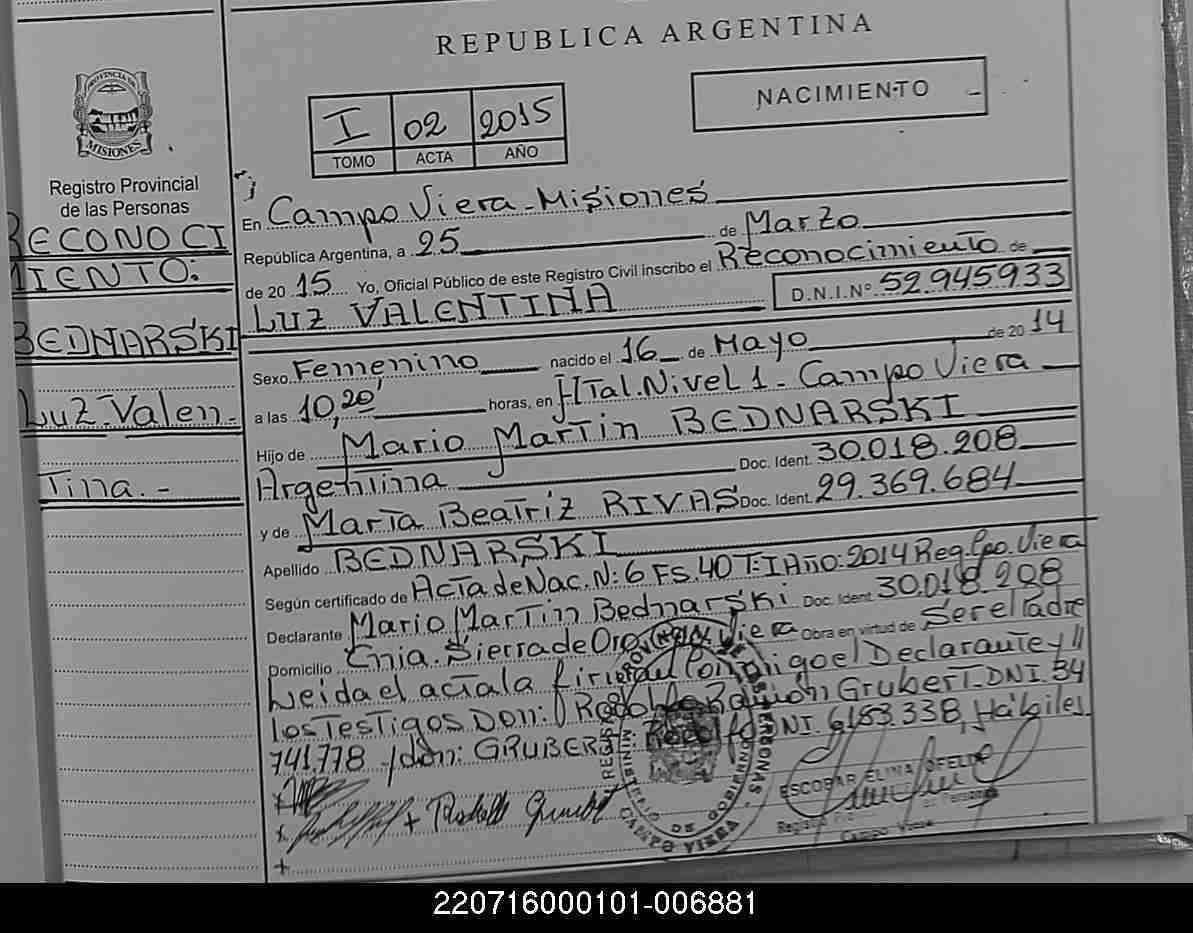 REPUBLICA ARGENTINA
PROVINCIA DE
MISIONES
Registro Provincial
de las Personas
RECONOCI
MIENTO:
BEDNARSKI
Luz Valen-
Tina.-
I 02 2015
TOMO ACTA AÑO
NACIMIENTO
En Campo Viera - Misiones
República Argentina, a 25 de Marzo
de 20 15 Yo, Oficial Público de este Registro Civil inscribo el Reconocimiento de
LUZ VALENTINA D.N.I.Nº 52.945.933
Sexo Femenino nacido el 16 de Mayo de 20 14
a las 10,20 horas, en HTal. Nivel 1 - Campo Viera
Hijo de Mario Martin BEDNARSKI
Argentina Doc. Ident. 30.018.208
y de María Beatriz RIVAS Doc. Ident. 29.369.684
Apellido BEDNARSKI
Según certificado de Acta de Nac. N: 6 Fs. 40 T: I Año: 2014 Reg. Cpo. Viera
Declarante Mario Martin Bednarski Doc. Ident. 30.018.208
Domicilio Cnia. Sierra de Oro Viera Obra en virtud de Ser el Padre
Leida el acta la Conmigo el Declarante y
los Testigos Don: Ramón Grubert - DNI. 34
741.778 y don: GRUBERT: DNI. 6153.338, Hábiles
ESCOBAR ELINA OFELIA
Campo Viera
REGISTRO PROVINCIAL DE LAS PERSONAS
MINISTERIO DE GOBIERNO
CAMPO VIERA
220716000101-006881